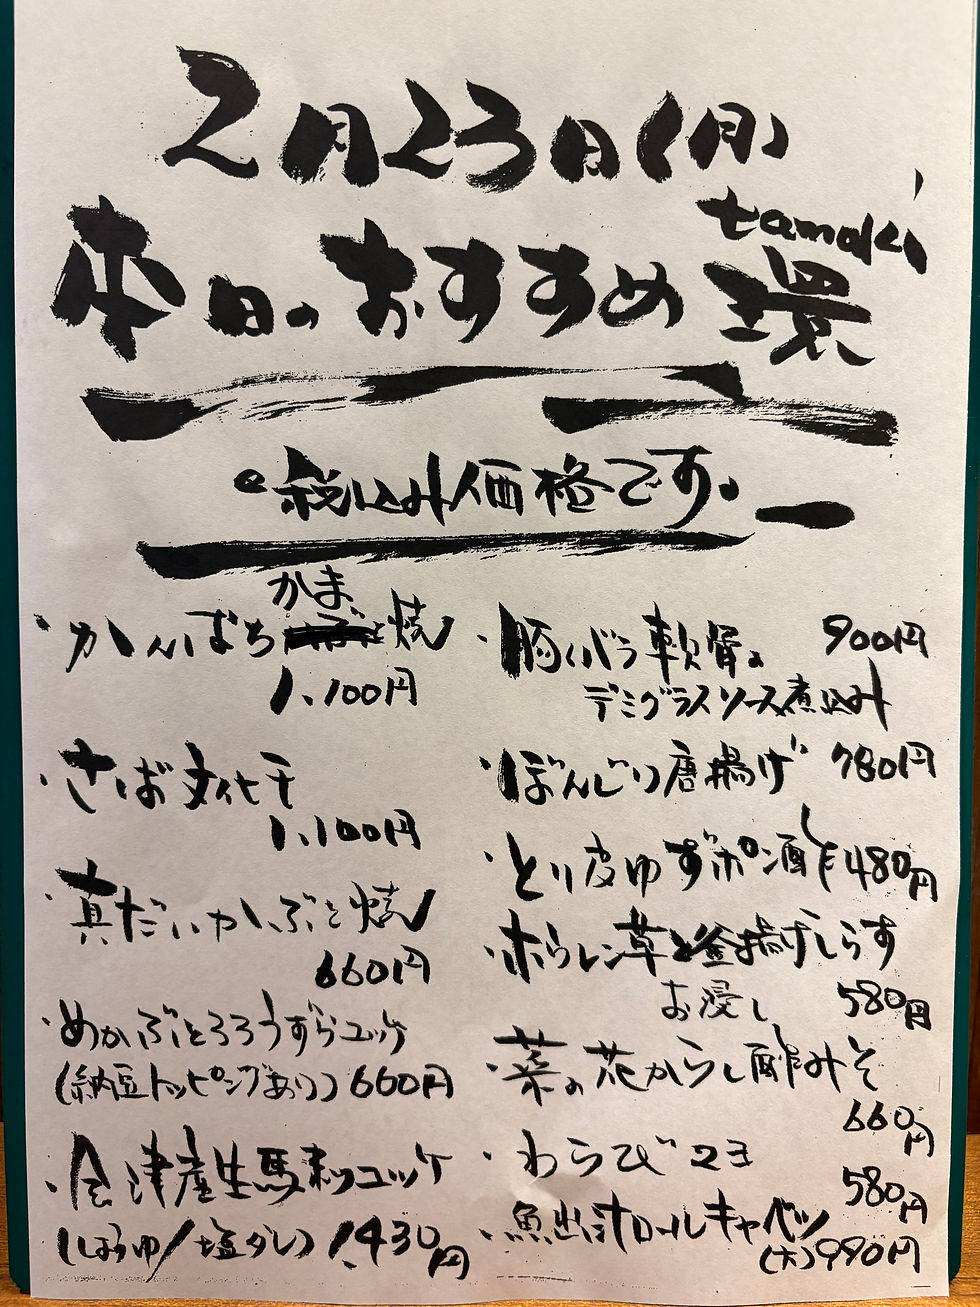 2月23日(月)
本日のおすすめ 環
tamaki
税込み価格です。
・かんぱちかま焼
1,100円
・さば文化干
1,100円
・真だいかぶと焼
660円
・めかぶとろろうずらユッケ
(納豆トッピングあり) 660円
・会津産生馬刺ユッケ
(しょうゆ/塩ダレ) 1,430円
・豚バラ軟骨の 900円
デミグラスソース煮込み
・ぼんじり唐揚げ 780円
・とり皮ゆずポン酢 480円
・ホウレン草と釜揚げしらす
お浸し 580円
・菜の花からし酢みそ
660円
・わらび
580円
・魚出汁ロールキャベツ
(大) 990円